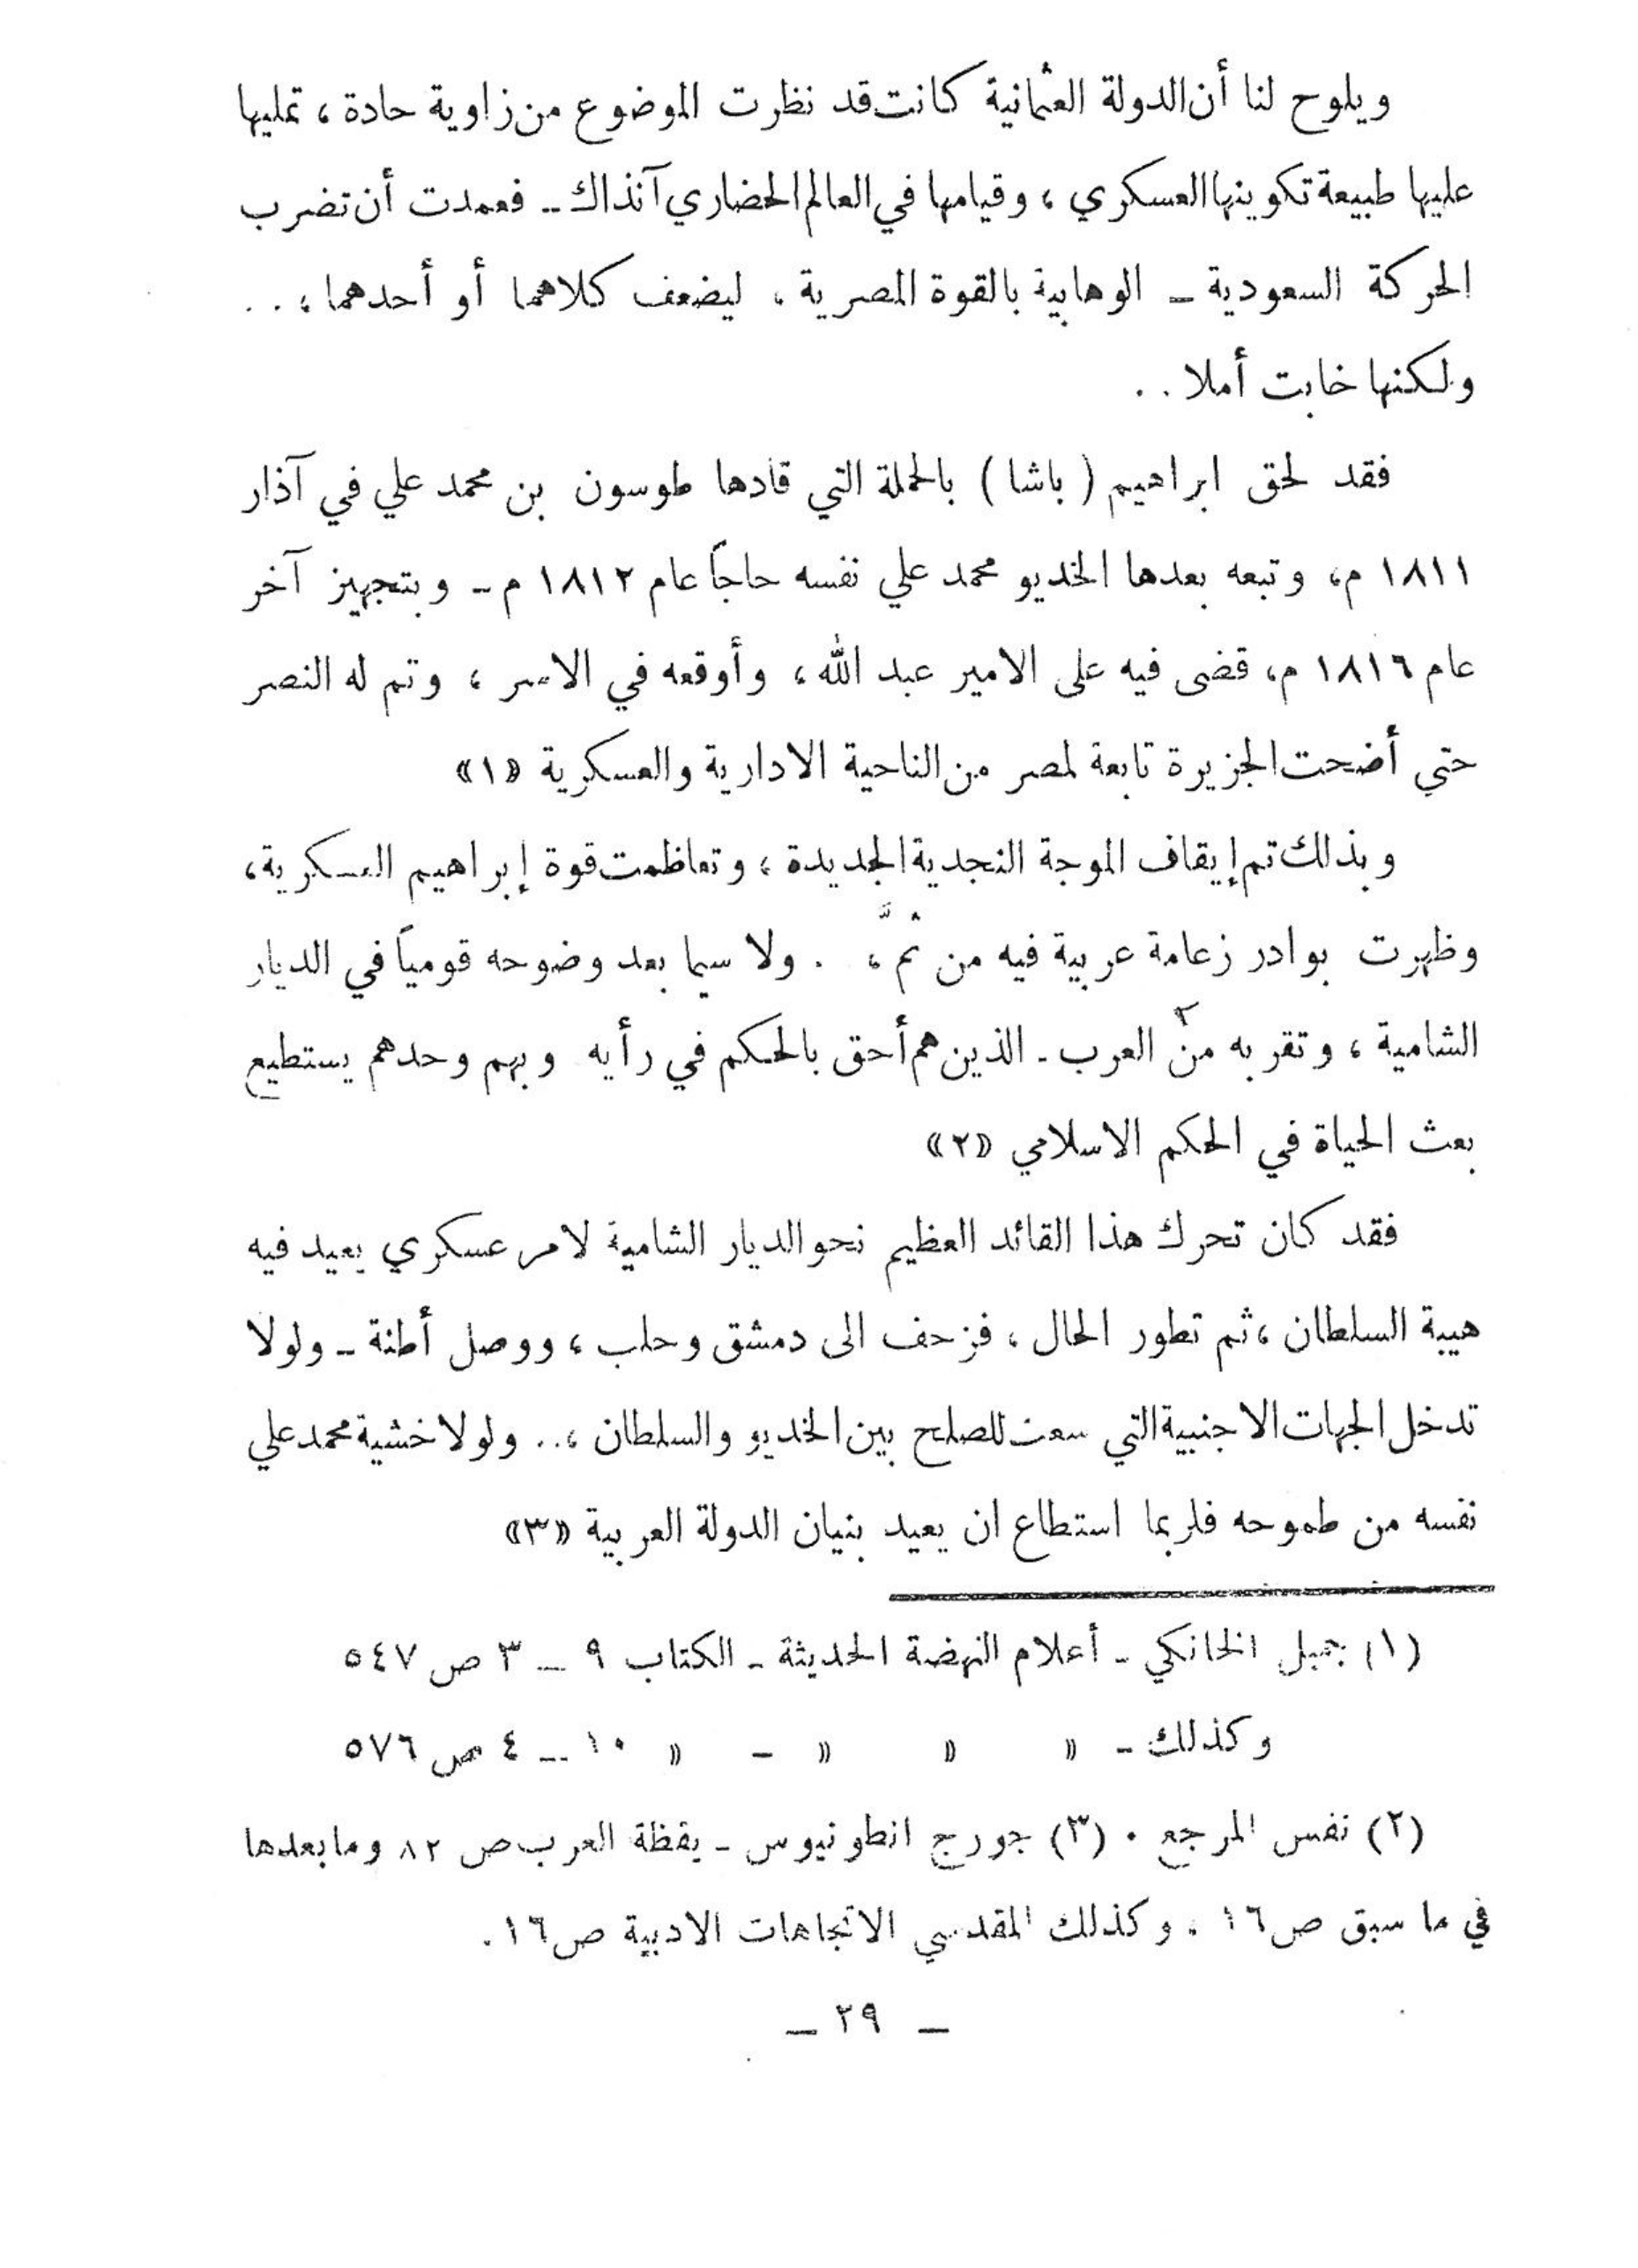 ويلوح لنا أن الدولة العثمانية كانت قد نظرت الموضوع من زاوية حادة ، تمليها
عليها طبيعة تكوينها العسكري ، وقيامها في العالم الحضاري آنذاك ـ فعمدت أن تضرب
الحركة السعودية ـ الوهابية بالقوة المصرية ، ليضعف كلاهما أو أحدهما ، . .
ولكنها خابت أملا . .
فقد لحق ابراهيم ( باشا ) بالحملة التي قادها طوسون بن محمد علي في آذار
١٨١١ م ، وتبعه بعدها الخديو محمد علي نفسه حاجاً عام ١٨١٢ م ـ وبتجهيز آخر
عام ١٨١٦ م ، قضى فيه على الامير عبد الله ، وأوقعه في الاسر ، وتم له النصر
حتى أضحت الجزيرة تابعة لمصر من الناحية الادارية والعسكرية «١»
وبذلك تم إيقاف الموجة النجدية الجديدة ، وتعاظمت قوة إبراهيم العسكرية ،
وظهرت بوادر زعامة عربية فيه من ثمَّ ، . ولا سيما بعد وضوحه قومياً في الديار
الشامية ، وتقربه من العرب ـ الذين هم أحق بالحكم في رأيه وبهم وحدهم يستطيع
بعث الحياة في الحكم الاسلامي «٢»
فقد كان تحرك هذا القائد العظيم نحو الديار الشامية لامر عسكري يعيد فيه
هيبة السلطان ، ثم تطور الحال ، فزحف الى دمشق وحلب ، ووصل أطنة ـ ولولا
تدخل الجهات الاجنبية التي سعت للصلح بين الخديو والسلطان ، . . ولولا خشية محمد علي
نفسه من طموحه فلربما استطاع ان يعيد بنيان الدولة العربية «٣»
(١) جميل الخانكي ـ أعلام النهضة الحديثة ـ الكتاب ٩ ـ ٣ ص ٥٤٧
وكذلك ـ » » » ـ » ١٠ ـ ٤ ص ٥٧٦
(٢) نفس المرجع . (٣) جورج انطونيوس ـ يقظة العرب ص ٨٢ وما بعدها
في ما سبق ص ١٦ . وكذلك المقدسي الاتجاهات الادبية ص ١٦ .
ـ ٢٩ ـ